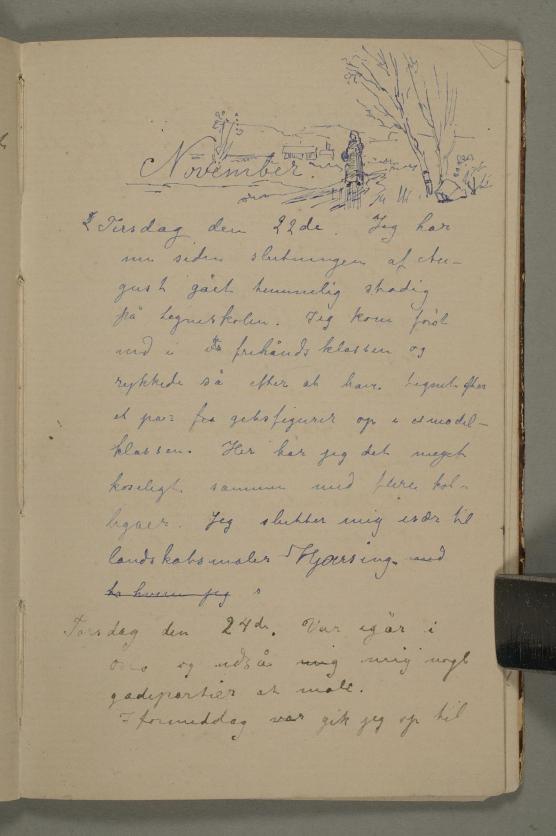 November.
Tirsdag den 22de. Jeg har
nu siden slutningen af Au-
gust gået temmelig stadig
på tegneskolen. Jeg kom først
ind i frihåndsklassen og
rykkede så efter at have tegnet efter
et par fra gibsfigurer op i modél-
klassen. Her har jeg det meget
koseligt sammen med flere kol-
legaer. Jeg slutter mig især til
landskabsmaler Hjersing. med
hvem jeg
Torsdag den 24de. Var igår i
Oslo og udså mig mig nogle
gadepartier at male.
I formiddag var gik jeg op til